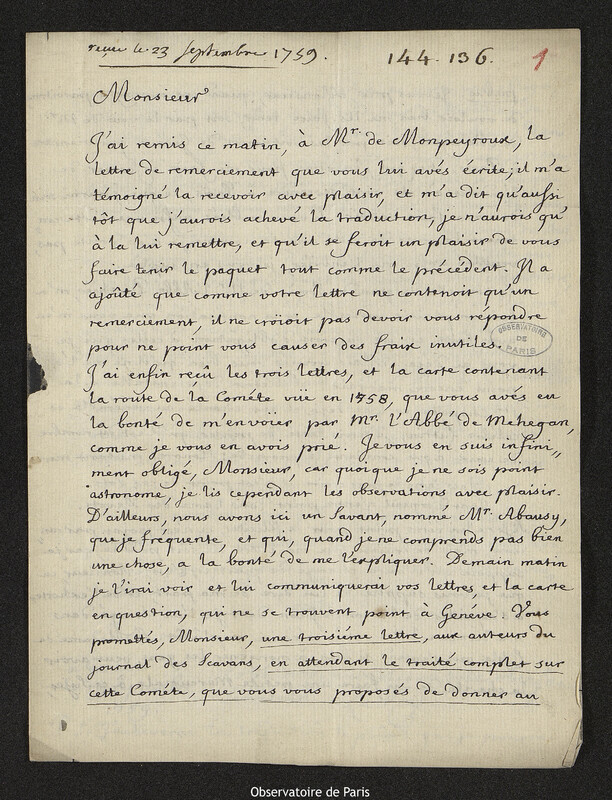 reçue le 23 septembre 1759.
144. 136.
1
Monsieur
J'ai remis ce matin, à Mr. de Monpeyroux, la
lettre de remerciement que vous lui avés écrite; il m'a
témoigné la recevoir avec plaisir, et m'a dit qu'aussi
tôt que j'aurois achevé la traduction, je n'aurois qu'
à la lui remettre, et qu'il se feroit un plaisir de vous
faire tenir le paquet tout comme le précédent. Il a
ajoûté que comme votre lettre ne contenoit qu'un
remerciement, il ne croïoit pas devoir vous répondre
pour ne point vous causer des fraix inutiles.
OBSERVATOIRE
DE
PARIS
J'ai enfin reçû les trois lettres, et la carte contenant
la route de la Cométe vüe en 1758, que vous avés eu
la bonté de m'envoïer par Mr. l'Abbé de Mehegan,
comme je vous en avois prié. Je vous en suis infini„
ment obligé, Monsieur, car quoique je ne sois point
astronome, je lis cependant les observations avec plaisir.
D'ailleurs, nous avons ici un Savant, nommé Mr. Abausy,
que je fréquente, et qui, quand je ne comprends pas bien
une chose, a la bonté de me l'expliquer. Demain matin
je l'irai voir et lui communiquerai vos lettres, et la carte
en question, qui ne se trouvent point à Genéve. Vous
promettés, Monsieur, une troisiéme lettre, aux auteurs du
journal des Scavans, en attendant le traité complet sur
cette Cométe, que vous vous proposés de donner au
Observatoire de Paris